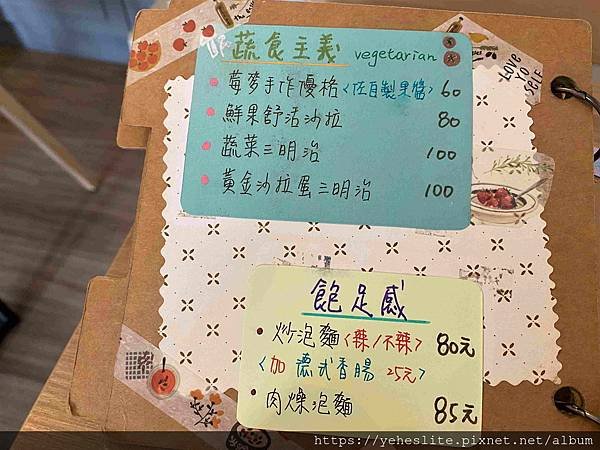 蔬食主義 vegetarian
莓麥手作優格<佐自製果醬> 60
鮮果舒活沙拉 80
蔬菜三明治 100
黃金沙拉蛋三明治 100
LOVE TO SELF
飽足感
炒泡麵<辣/不辣> 80元
<加 德式香腸 25元>
肉燥泡麵 85元
https://yeheslite.pixnet.net/album